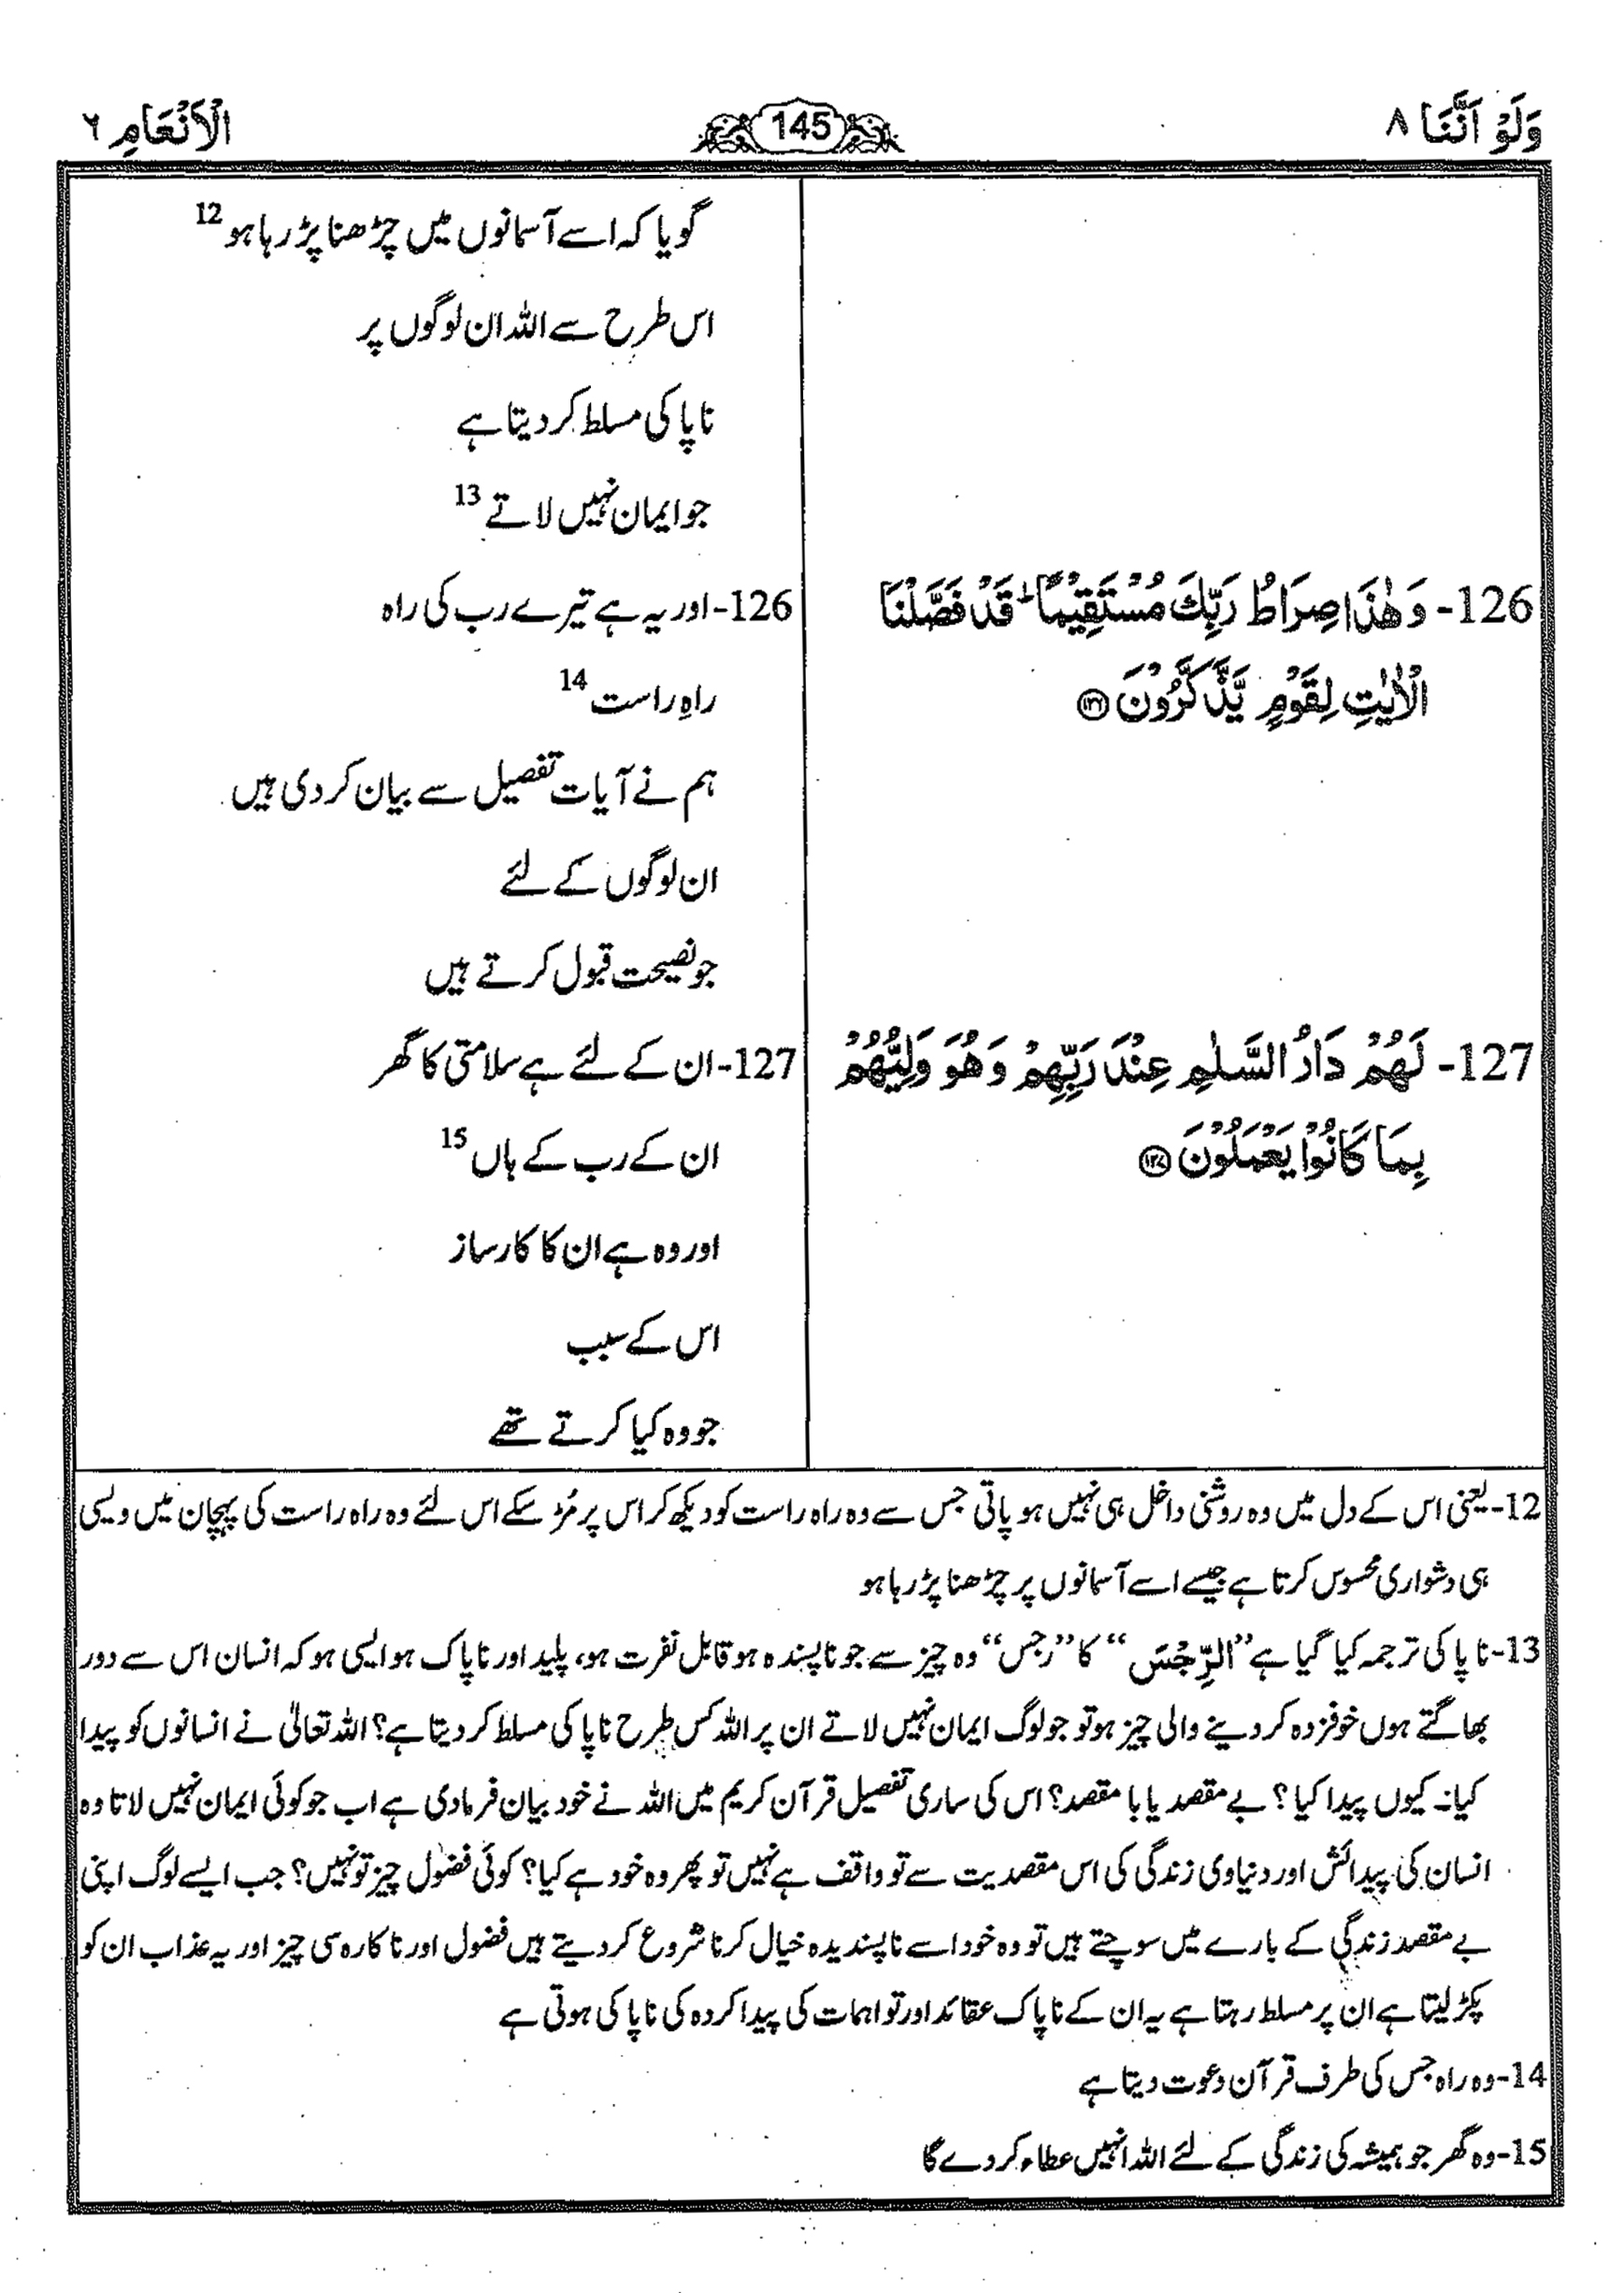 وَلَوْ اَنَّنَا ۸
145
الْاَنْعَامِ ٦
گویا کہ اسے آسمانوں میں چڑھنا پڑ رہا ہو 12
اس طرح سے اللہ ان لوگوں پر
ناپاکی مسلط کر دیتا ہے
جو ایمان نہیں لاتے 13
126- وَهٰذَا صِرَاطُ رَبِّكَ مُسْتَقِيْمًا ؕ قَدْ فَصَّلْنَا
الْاٰيٰتِ لِقَوْمٍ يَّذَّكَّرُوْنَ ۝۱۲۶
126- اور یہ ہے تیرے رب کی راہ
راہِ راست 14
ہم نے آیات تفصیل سے بیان کر دی ہیں
ان لوگوں کے لئے
جو نصیحت قبول کرتے ہیں
127- لَهُمْ دَارُ السَّلٰمِ عِنْدَ رَبِّهِمْ وَهُوَ وَلِيُّهُمْ
بِمَا كَانُوْا يَعْمَلُوْنَ ۝۱۲۷
127- ان کے لئے ہے سلامتی کا گھر
ان کے رب کے ہاں 15
اور وہ ہے ان کا کارساز
اس کے سبب
جو وہ کیا کرتے تھے
12- یعنی اس کے دل میں وہ روشنی داخل ہی نہیں ہو پاتی جس سے وہ راہ راست کو دیکھ کر اس پر مُڑ سکے اس لئے وہ راہ راست کی پہچان میں ویسی
ہی دشواری محسوس کرتا ہے جیسے اسے آسمانوں پر چڑھنا پڑ رہا ہو
13- ناپاکی ترجمہ کیا گیا ہے ”الرِّجْسَ“ کا ”رجس“ وہ چیز سے جو ناپسندہ ہو قابل نفرت ہو، پلید اور ناپاک ہو ایسی ہو کہ انسان اس سے دور
بھاگتے ہوں خوفزدہ کر دینے والی چیز ہو تو جو لوگ ایمان نہیں لاتے ان پر اللہ کس طرح ناپاکی مسلط کر دیتا ہے؟ اللہ تعالیٰ نے انسانوں کو پیدا
کیا۔ کیوں پیدا کیا؟ بے مقصد یا با مقصد؟ اس کی ساری تفصیل قرآن کریم میں اللہ نے خود بیان فرمادی ہے اب جو کوئی ایمان نہیں لاتا وہ
انسان کی پیدائش اور دنیاوی زندگی کی اس مقصدیت سے تو واقف ہے نہیں تو پھر وہ خود ہے کیا؟ کوئی فضول چیز تو نہیں؟ جب ایسے لوگ اپنی
بے مقصد زندگی کے بارے میں سوچتے ہیں تو وہ خود اسے ناپسندیدہ خیال کرنا شروع کر دیتے ہیں فضول اور ناکارہ سی چیز اور یہ عذاب ان کو
پکڑ لیتا ہے ان پر مسلط رہتا ہے یہ ان کے ناپاک عقائد اور تواہمات کی پیدا کردہ کی ناپاکی ہوتی ہے
14- وہ راہ جس کی طرف قرآن دعوت دیتا ہے
15- وہ گھر جو ہمیشہ کی زندگی کے لئے اللہ انہیں عطاء کر دے گا